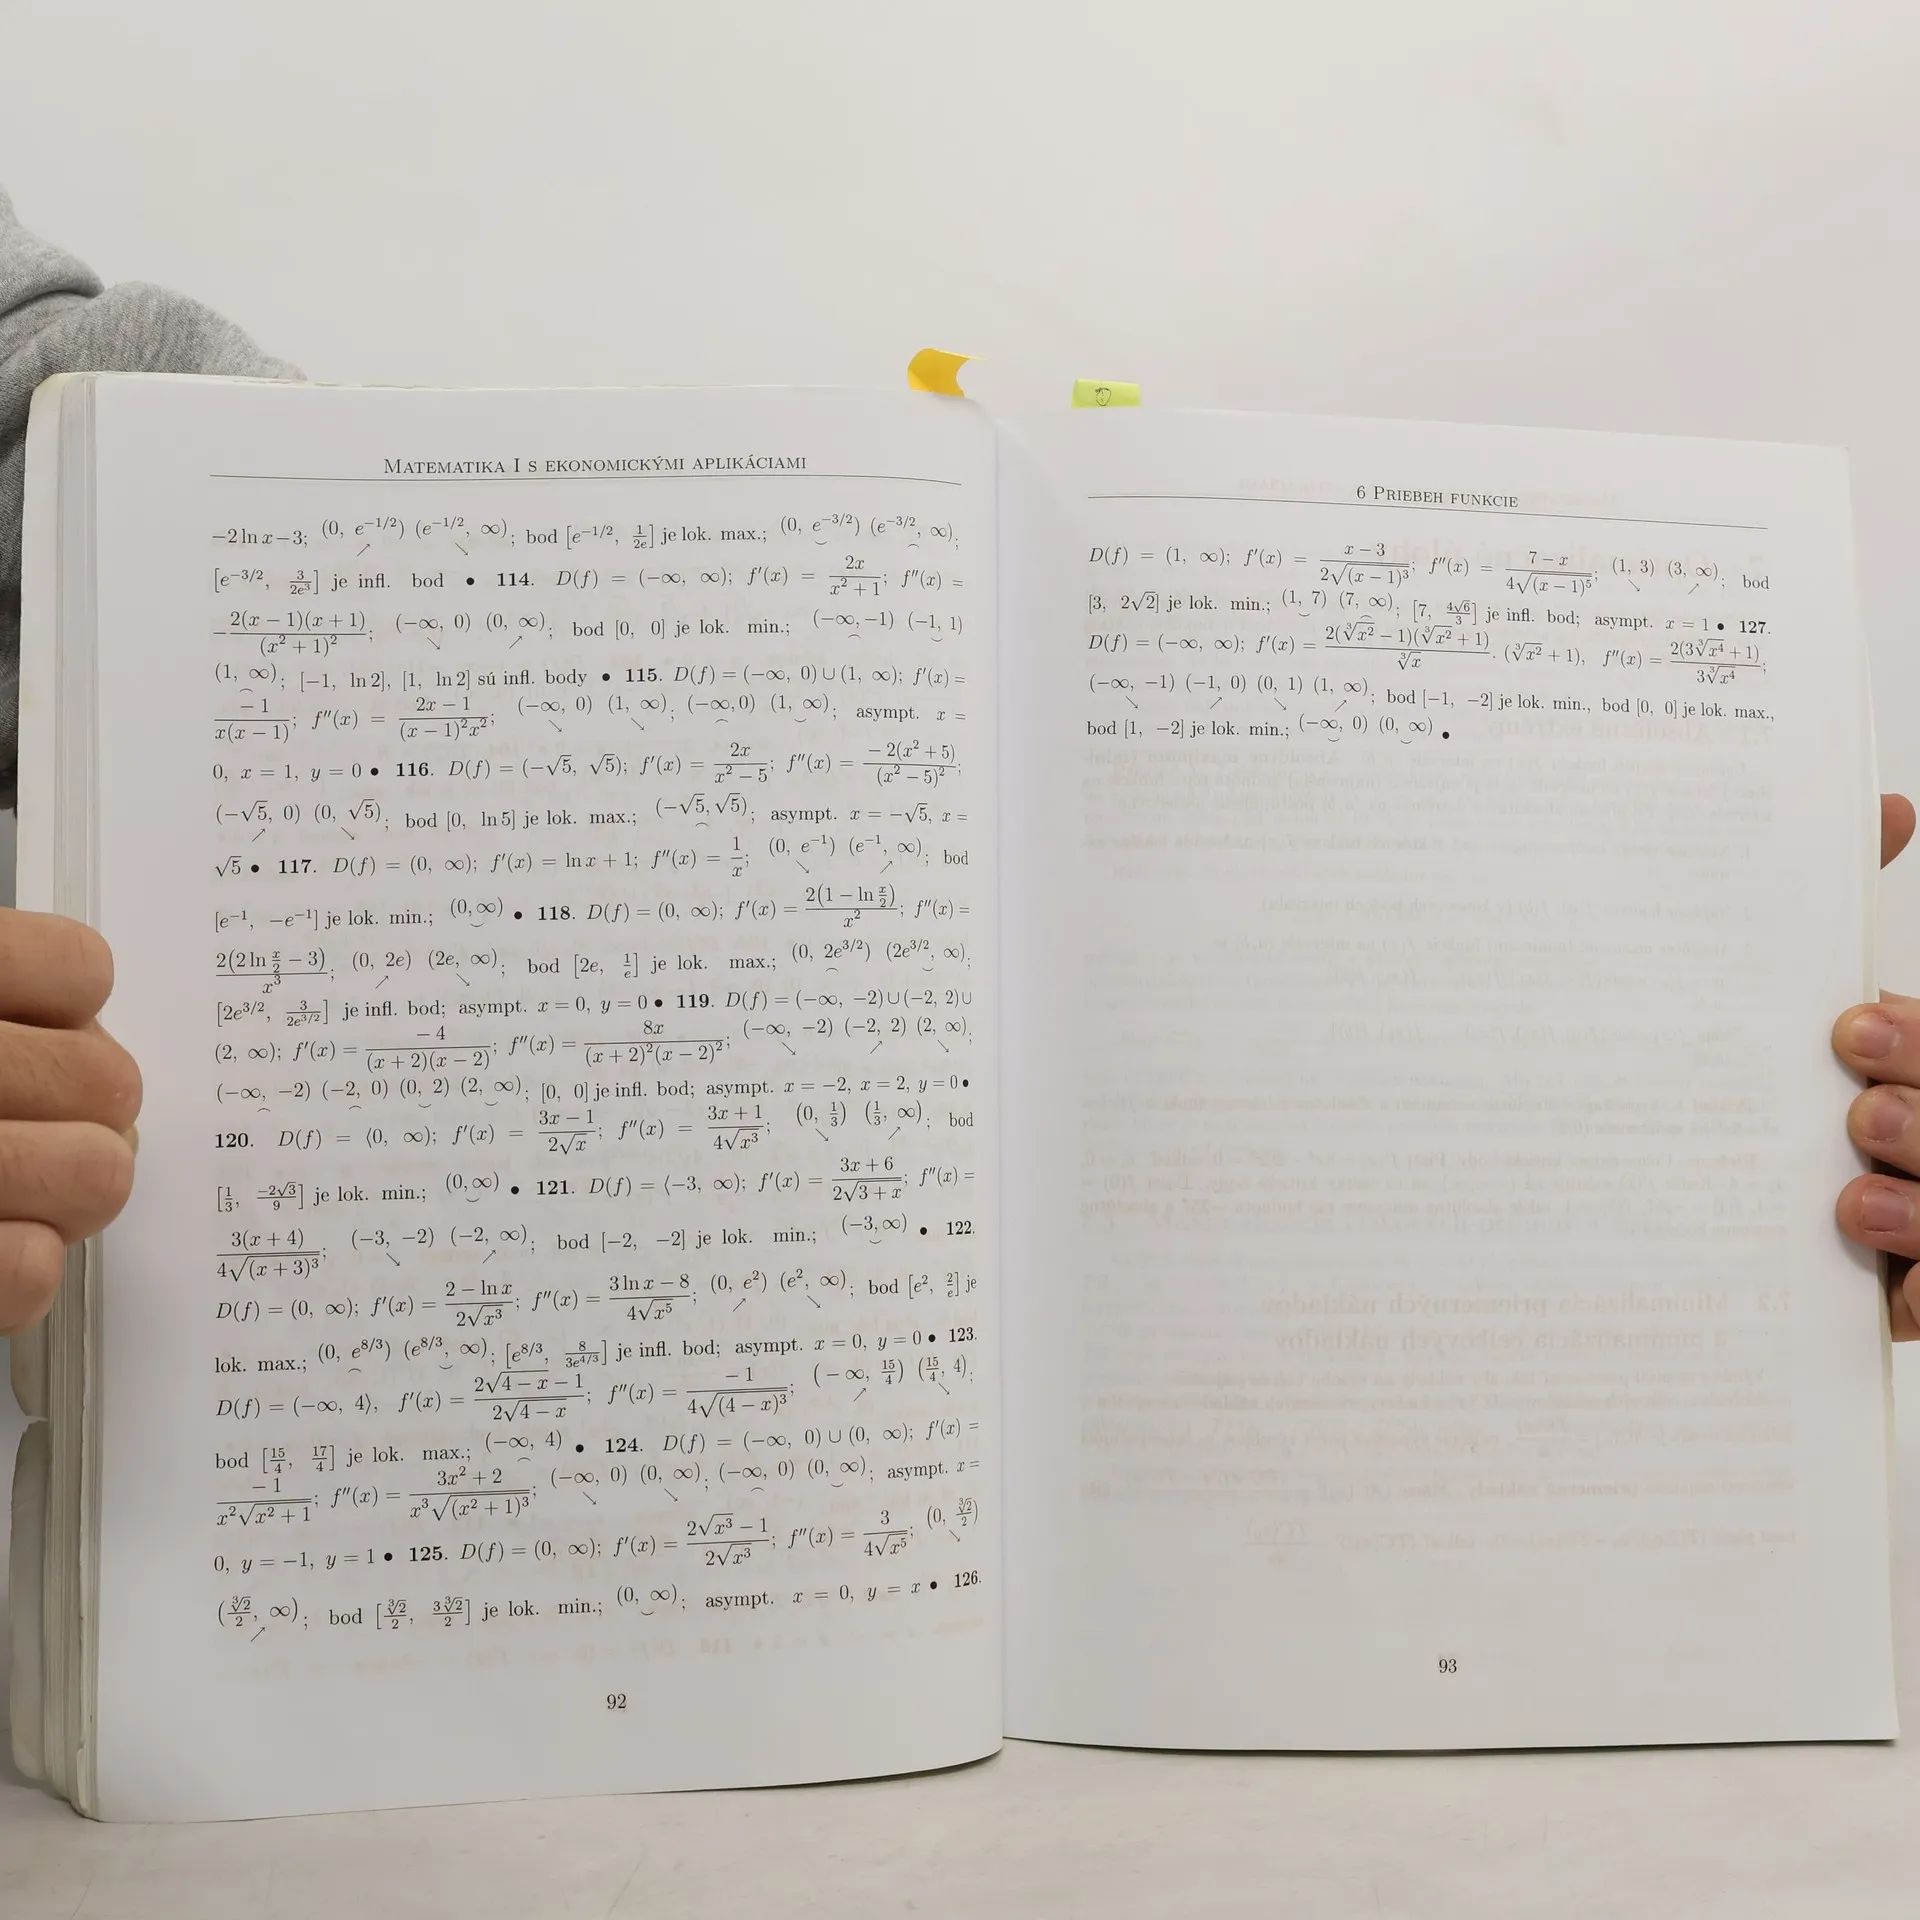 MATEMATIKA I S EKONOMICKÝMI APLIKÁCIAMI
−2 ln x−3; (0, e^{−1/2}) ↗ (e^{−1/2}, ∞) ↘; bod [e^{−1/2}, 1/(2e)] je lok. max.; (0, e^{−3/2}) ⌣ (e^{−3/2}, ∞) ⌢;
[e^{−3/2}, 3/(2e³)] je infl. bod • 114. D(f) = (−∞, ∞); f′(x) = 2x/(x² + 1); f″(x) =
−2(x − 1)(x + 1)/(x² + 1)²; (−∞, 0) ↘ (0, ∞) ↗; bod [0, 0] je lok. min.; (−∞, −1) ⌢ (−1, 1) ⌣
(1, ∞) ⌢; [−1, ln 2], [1, ln 2] sú infl. body • 115. D(f) = (−∞, 0) ∪ (1, ∞); f′(x) =
−1/(x(x − 1)); f″(x) = (2x − 1)/((x − 1)²x²); (−∞, 0) ↘ (1, ∞) ↘; (−∞, 0) ⌢ (1, ∞) ⌣; asympt. x =
0, x = 1, y = 0 • 116. D(f) = (−√5, √5); f′(x) = 2x/(x² − 5); f″(x) = −2(x² + 5)/(x² − 5)²;
(−√5, 0) ↗ (0, √5) ↘; bod [0, ln 5] je lok. max.; (−√5, √5) ⌢; asympt. x = −√5, x =
√5 • 117. D(f) = (0, ∞); f′(x) = ln x + 1; f″(x) = 1/x; (0, e^{−1}) ↘ (e^{−1}, ∞) ↗; bod
[e^{−1}, −e^{−1}] je lok. min.; (0, ∞) ⌣ • 118. D(f) = (0, ∞); f′(x) = 2(1 − ln x/2)/x²; f″(x) =
2(2 ln x/2 − 3)/x³; (0, 2e) ↗ (2e, ∞) ↘; bod [2e, 1/e] je lok. max.; (0, 2e^{3/2}) ⌢ (2e^{3/2}, ∞) ⌣;
[2e^{3/2}, 3/(2e^{3/2})] je infl. bod; asympt. x = 0, y = 0 • 119. D(f) = (−∞, −2) ∪ (−2, 2) ∪
(2, ∞); f′(x) = −4/((x + 2)(x − 2)); f″(x) = 8x/((x + 2)²(x − 2)²); (−∞, −2) ↘ (−2, 2) ↗ (2, ∞) ↘;
(−∞, −2) ⌢ (−2, 0) ⌢ (0, 2) ⌣ (2, ∞) ⌣; [0, 0] je infl. bod; asympt. x = −2, x = 2, y = 0 •
120. D(f) = ⟨0, ∞); f′(x) = (3x − 1)/(2√x); f″(x) = (3x + 1)/(4√x³); (0, 1/3) ↘ (1/3, ∞) ↗; bod
[1/3, −2√3/9] je lok. min.; (0, ∞) ⌣ • 121. D(f) = ⟨−3, ∞); f′(x) = (3x + 6)/(2√(3 + x)); f″(x) =
3(x + 4)/(4√(x + 3)³); (−3, −2) ↘ (−2, ∞) ↗; bod [−2, −2] je lok. min.; (−3, ∞) ⌣ • 122.
D(f) = (0, ∞); f′(x) = (2 − ln x)/(2√x³); f″(x) = (3 ln x − 8)/(4√x⁵); (0, e²) ↗ (e², ∞) ↘; bod [e², 2/e] je
lok. max.; (0, e^{8/3}) ⌢ (e^{8/3}, ∞) ⌣; [e^{8/3}, 8/(3e^{4/3})] je infl. bod; asympt. x = 0, y = 0 • 123.
D(f) = (−∞, 4⟩, f′(x) = (2√(4 − x) − 1)/(2√(4 − x)); f″(x) = −1/(4√(4 − x)³); (−∞, 15/4) ↗ (15/4, 4) ↘;
bod [15/4, 17/4] je lok. max.; (−∞, 4) ⌢ • 124. D(f) = (−∞, 0) ∪ (0, ∞); f′(x) =
−1/(x²√(x² + 1)); f″(x) = (3x² + 2)/(x³√(x² + 1)³); (−∞, 0) ↘ (0, ∞) ↘; (−∞, 0) ⌢ (0, ∞) ⌣; asympt. x =
0, y = −1, y = 1 • 125. D(f) = (0, ∞); f′(x) = (2√x³ − 1)/(2√x³); f″(x) = 3/(4√x⁵); (0, ∛2/2) ↘
(∛2/2, ∞) ↗; bod [∛2/2, 3∛2/2] je lok. min.; (0, ∞) ⌣; asympt. x = 0, y = x • 126.
92
6 PRIEBEH FUNKCIE
D(f) = (1, ∞); f′(x) = (x − 3)/(2√(x − 1)³); f″(x) = (7 − x)/(4√(x − 1)⁵); (1, 3) ↘ (3, ∞) ↗; bod
[3, 2√2] je lok. min.; (1, 7) ⌣ (7, ∞) ⌢; [7, 4√6/3] je infl. bod; asympt. x = 1 • 127.
D(f) = (−∞, ∞); f′(x) = 2(∛x² − 1)(∛x² + 1)/∛x · (∛x² + 1), f″(x) = 2(3∛x⁴ + 1)/(3∛x⁴);
(−∞, −1) ↘ (−1, 0) ↗ (0, 1) ↘ (1, ∞) ↗; bod [−1, −2] je lok. min., bod [0, 0] je lok. max.,
bod [1, −2] je lok. min.; (−∞, 0) ⌣ (0, ∞) ⌣ •
93